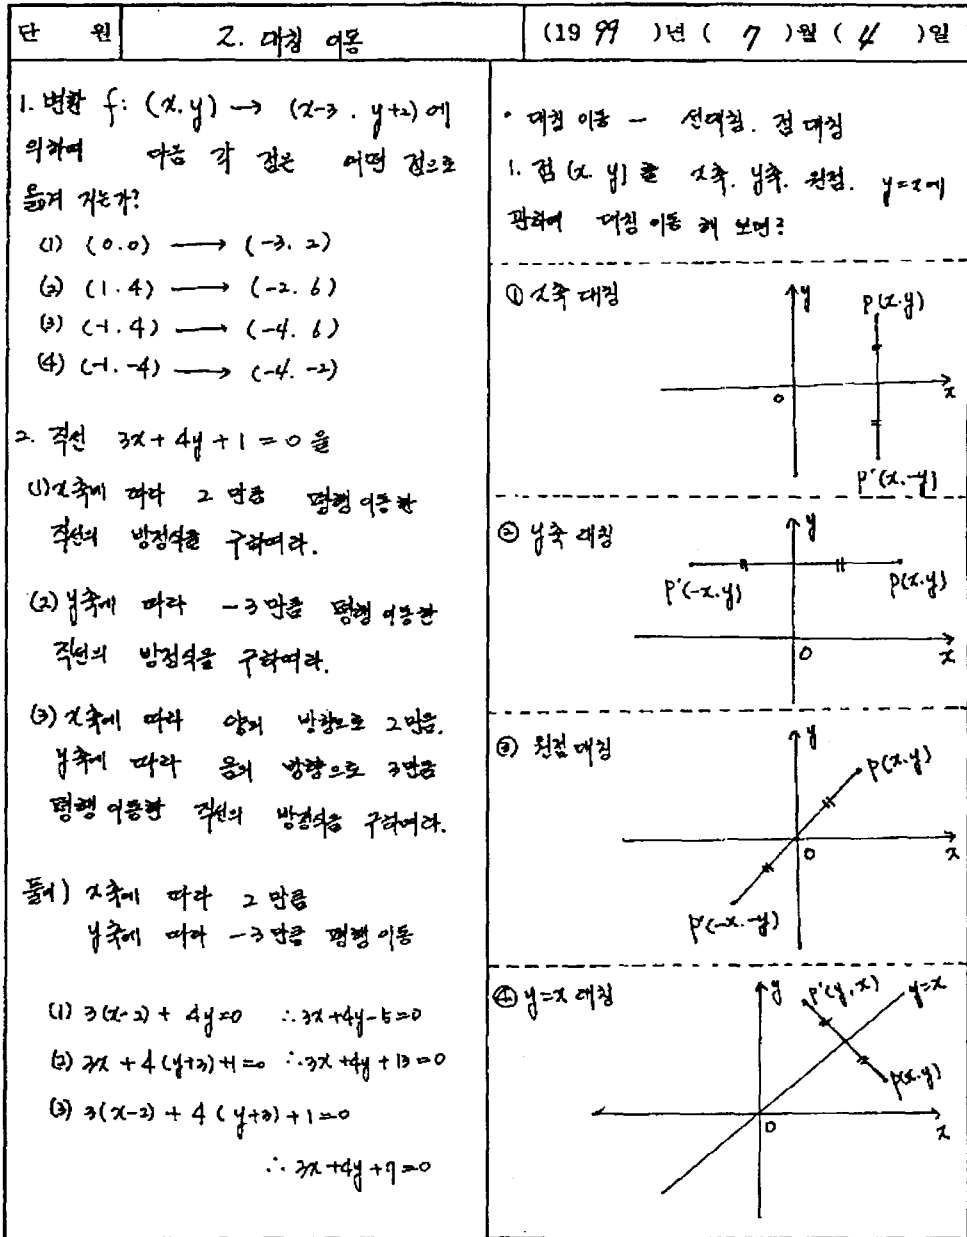 단 원
2. 대칭 이동
(19 99 )년 ( 7 )월 ( 4 )일
1. 변환 f: (x.y) → (x-3 . y+2) 에
의하여 다음 각 점은 어떤 점으로
옮겨 지는가?
(1) (0.0) → (-3. 2)
(2) (1.4) → (-2. 6)
(3) (-1.4) → (-4. 6)
(4) (-1.-4) → (-4. -2)
2. 직선 3x+4y+1=0 을
(1) x축에 따라 2 만큼 평행 이동한
직선의 방정식을 구하여라.
(2) y축에 따라 -3 만큼 평행 이동한
직선의 방정식을 구하여라.
(3) x축에 따라 양의 방향으로 2만큼.
y축에 따라 음의 방향으로 3만큼
평행 이동한 직선의 방정식을 구하여라.
풀이) x축에 따라 2 만큼
y축에 따라 -3 만큼 평행 이동
(1) 3(x-2) + 4y=0 ∴3x+4y-5=0
(2) 3x + 4(y+3)+1=0 ∴3x+4y+13=0
(3) 3(x-2) + 4(y+3)+1=0
∴ 3x+4y+7=0
• 대칭 이동 - 선대칭. 점 대칭
1. 점 (x. y) 를 x축. y축. 원점. y=x에
관하여 대칭 이동 해 보면?
① x축 대칭
y
P(x.y)
0
x
P'(x.-y)
② y축 대칭
y
P'(-x.y)
P(x.y)
0
x
③ 원점 대칭
y
P(x.y)
0
x
P'(-x.-y)
④ y=x 대칭
y
P'(y.x)
y=x
P(x.y)
0
x